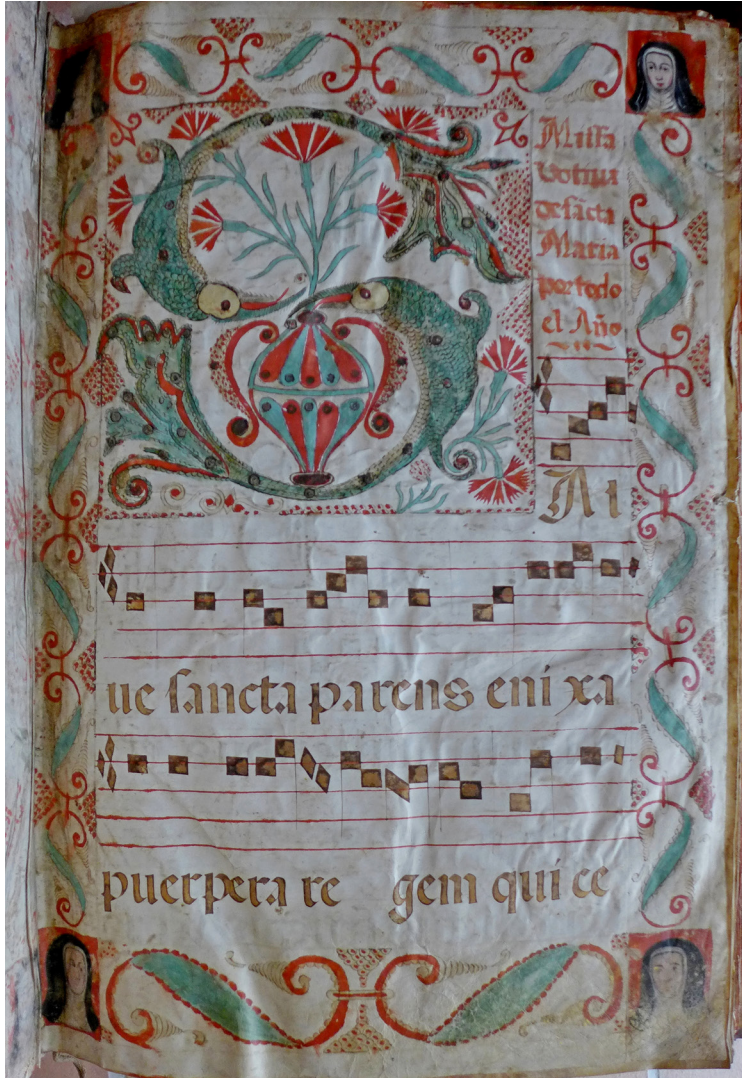 Missa
votiua
de sācta
Maria
por todo
el Año
S
A l
ue sancta parens enixa
puerpera re gem qui ce